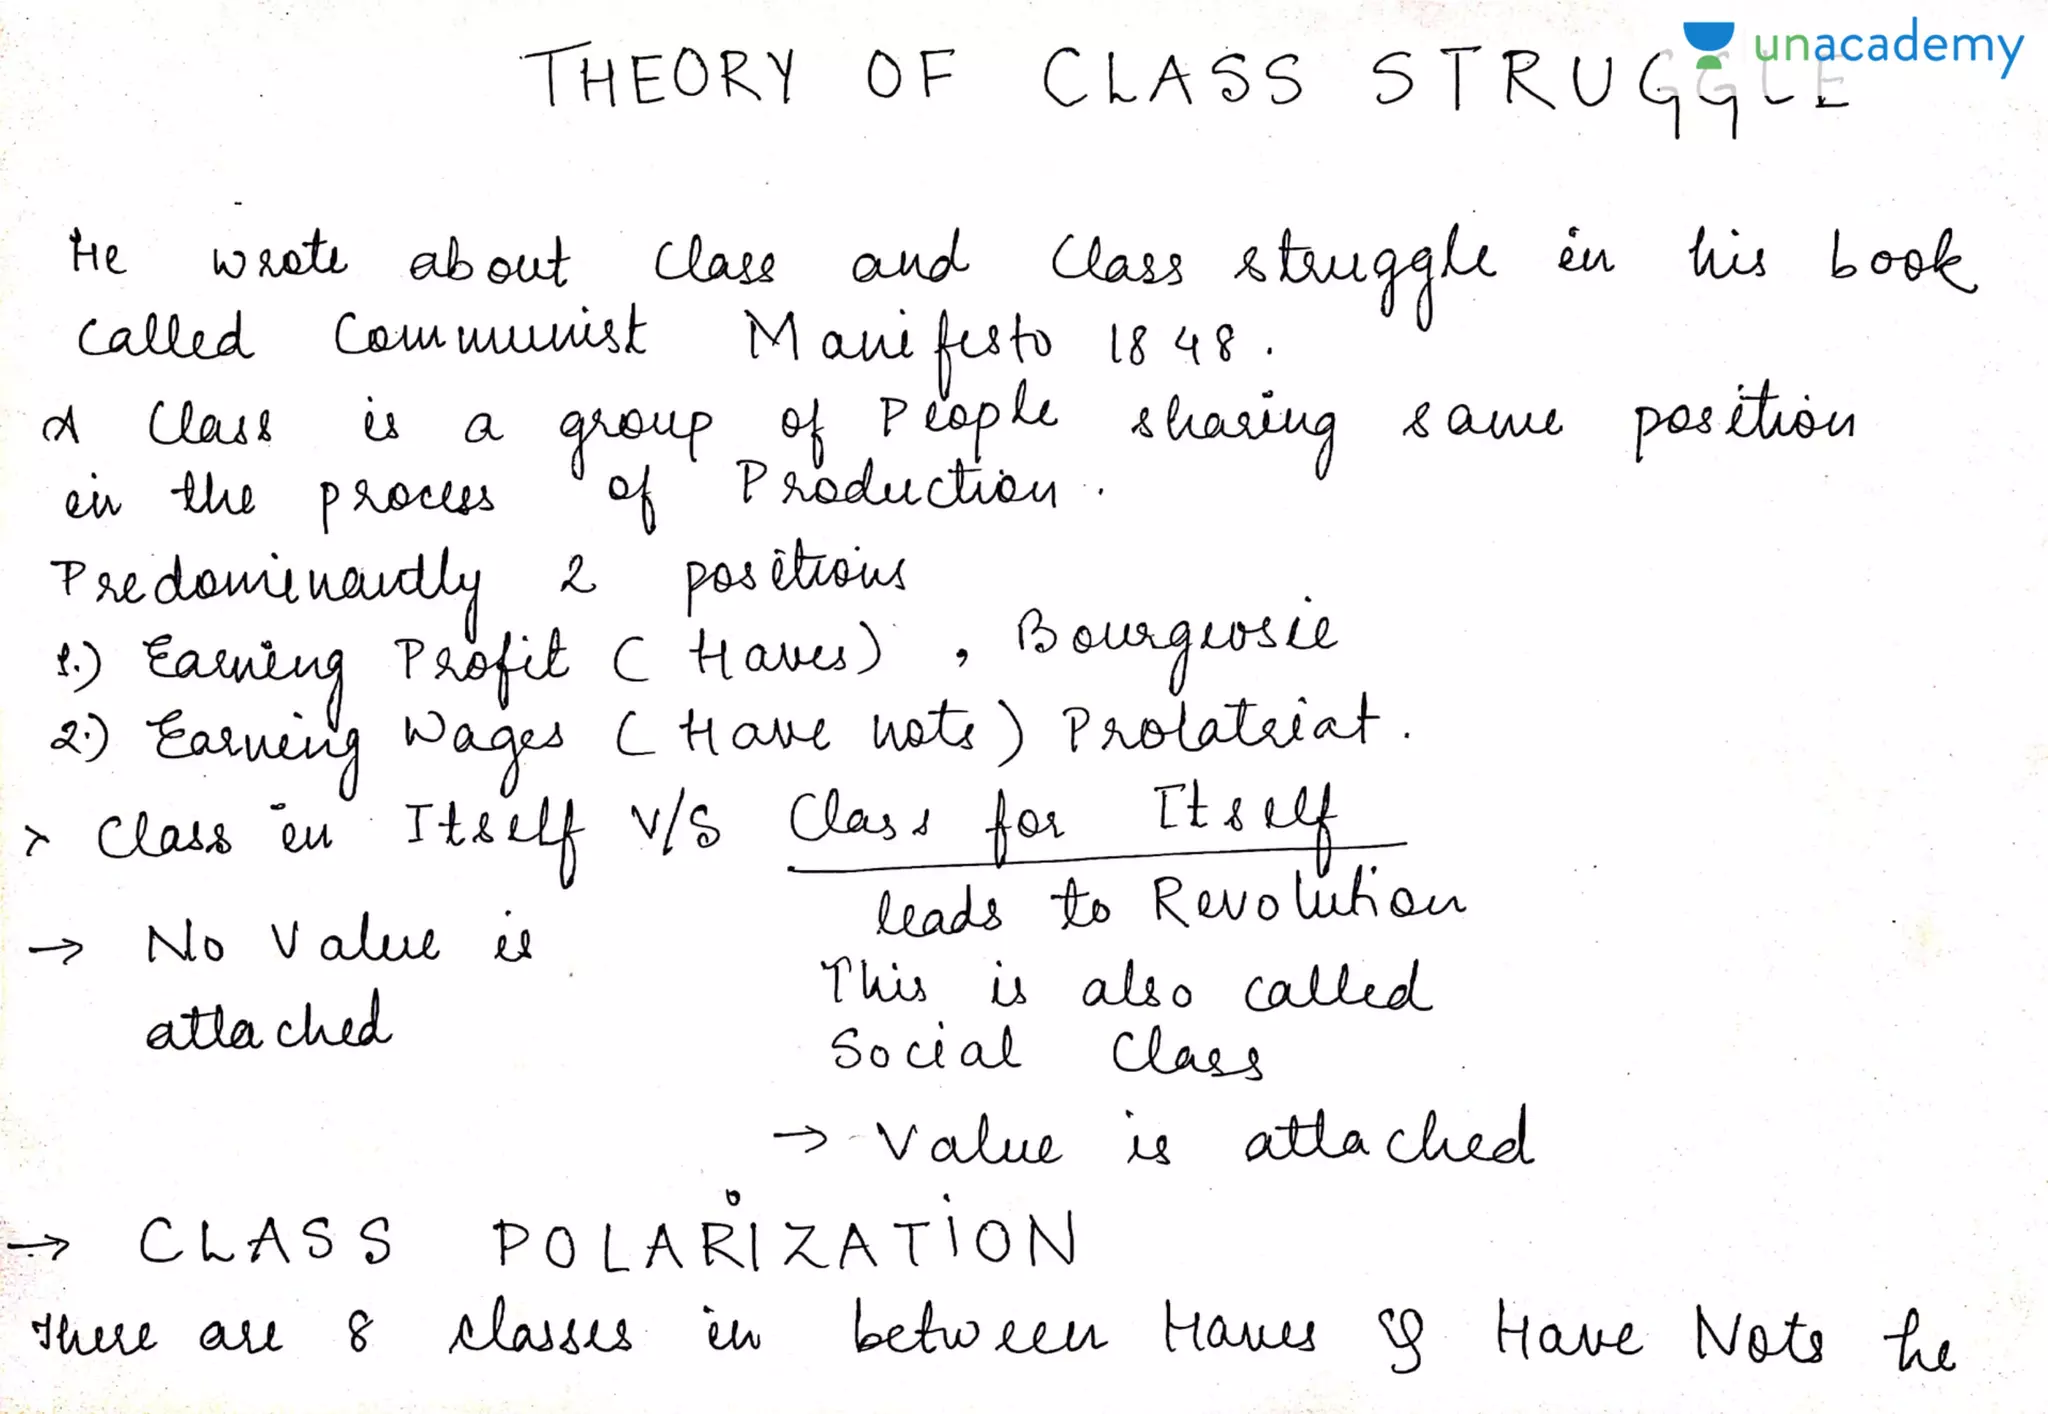 unacademy
THEORY OF CLASS STRUGGLE
He wrote about Class and Class struggle in his book
called Communist Manifesto 1848.
A Class is a group of People sharing same position
in the process of Production.
Predominandly 2 positions
1.) Earning Profit (Haves), Bourgeosie
2.) Earning Wages (Have nots) Prolatriat.
> Class in Itself V/S Class for Itself
leads to Revolution
→ No Value is
This is also called
attached
Social Class
→ Value is attached
→ CLASS POLARIZATION
There are 8 classes in between Haves & Have Nots he